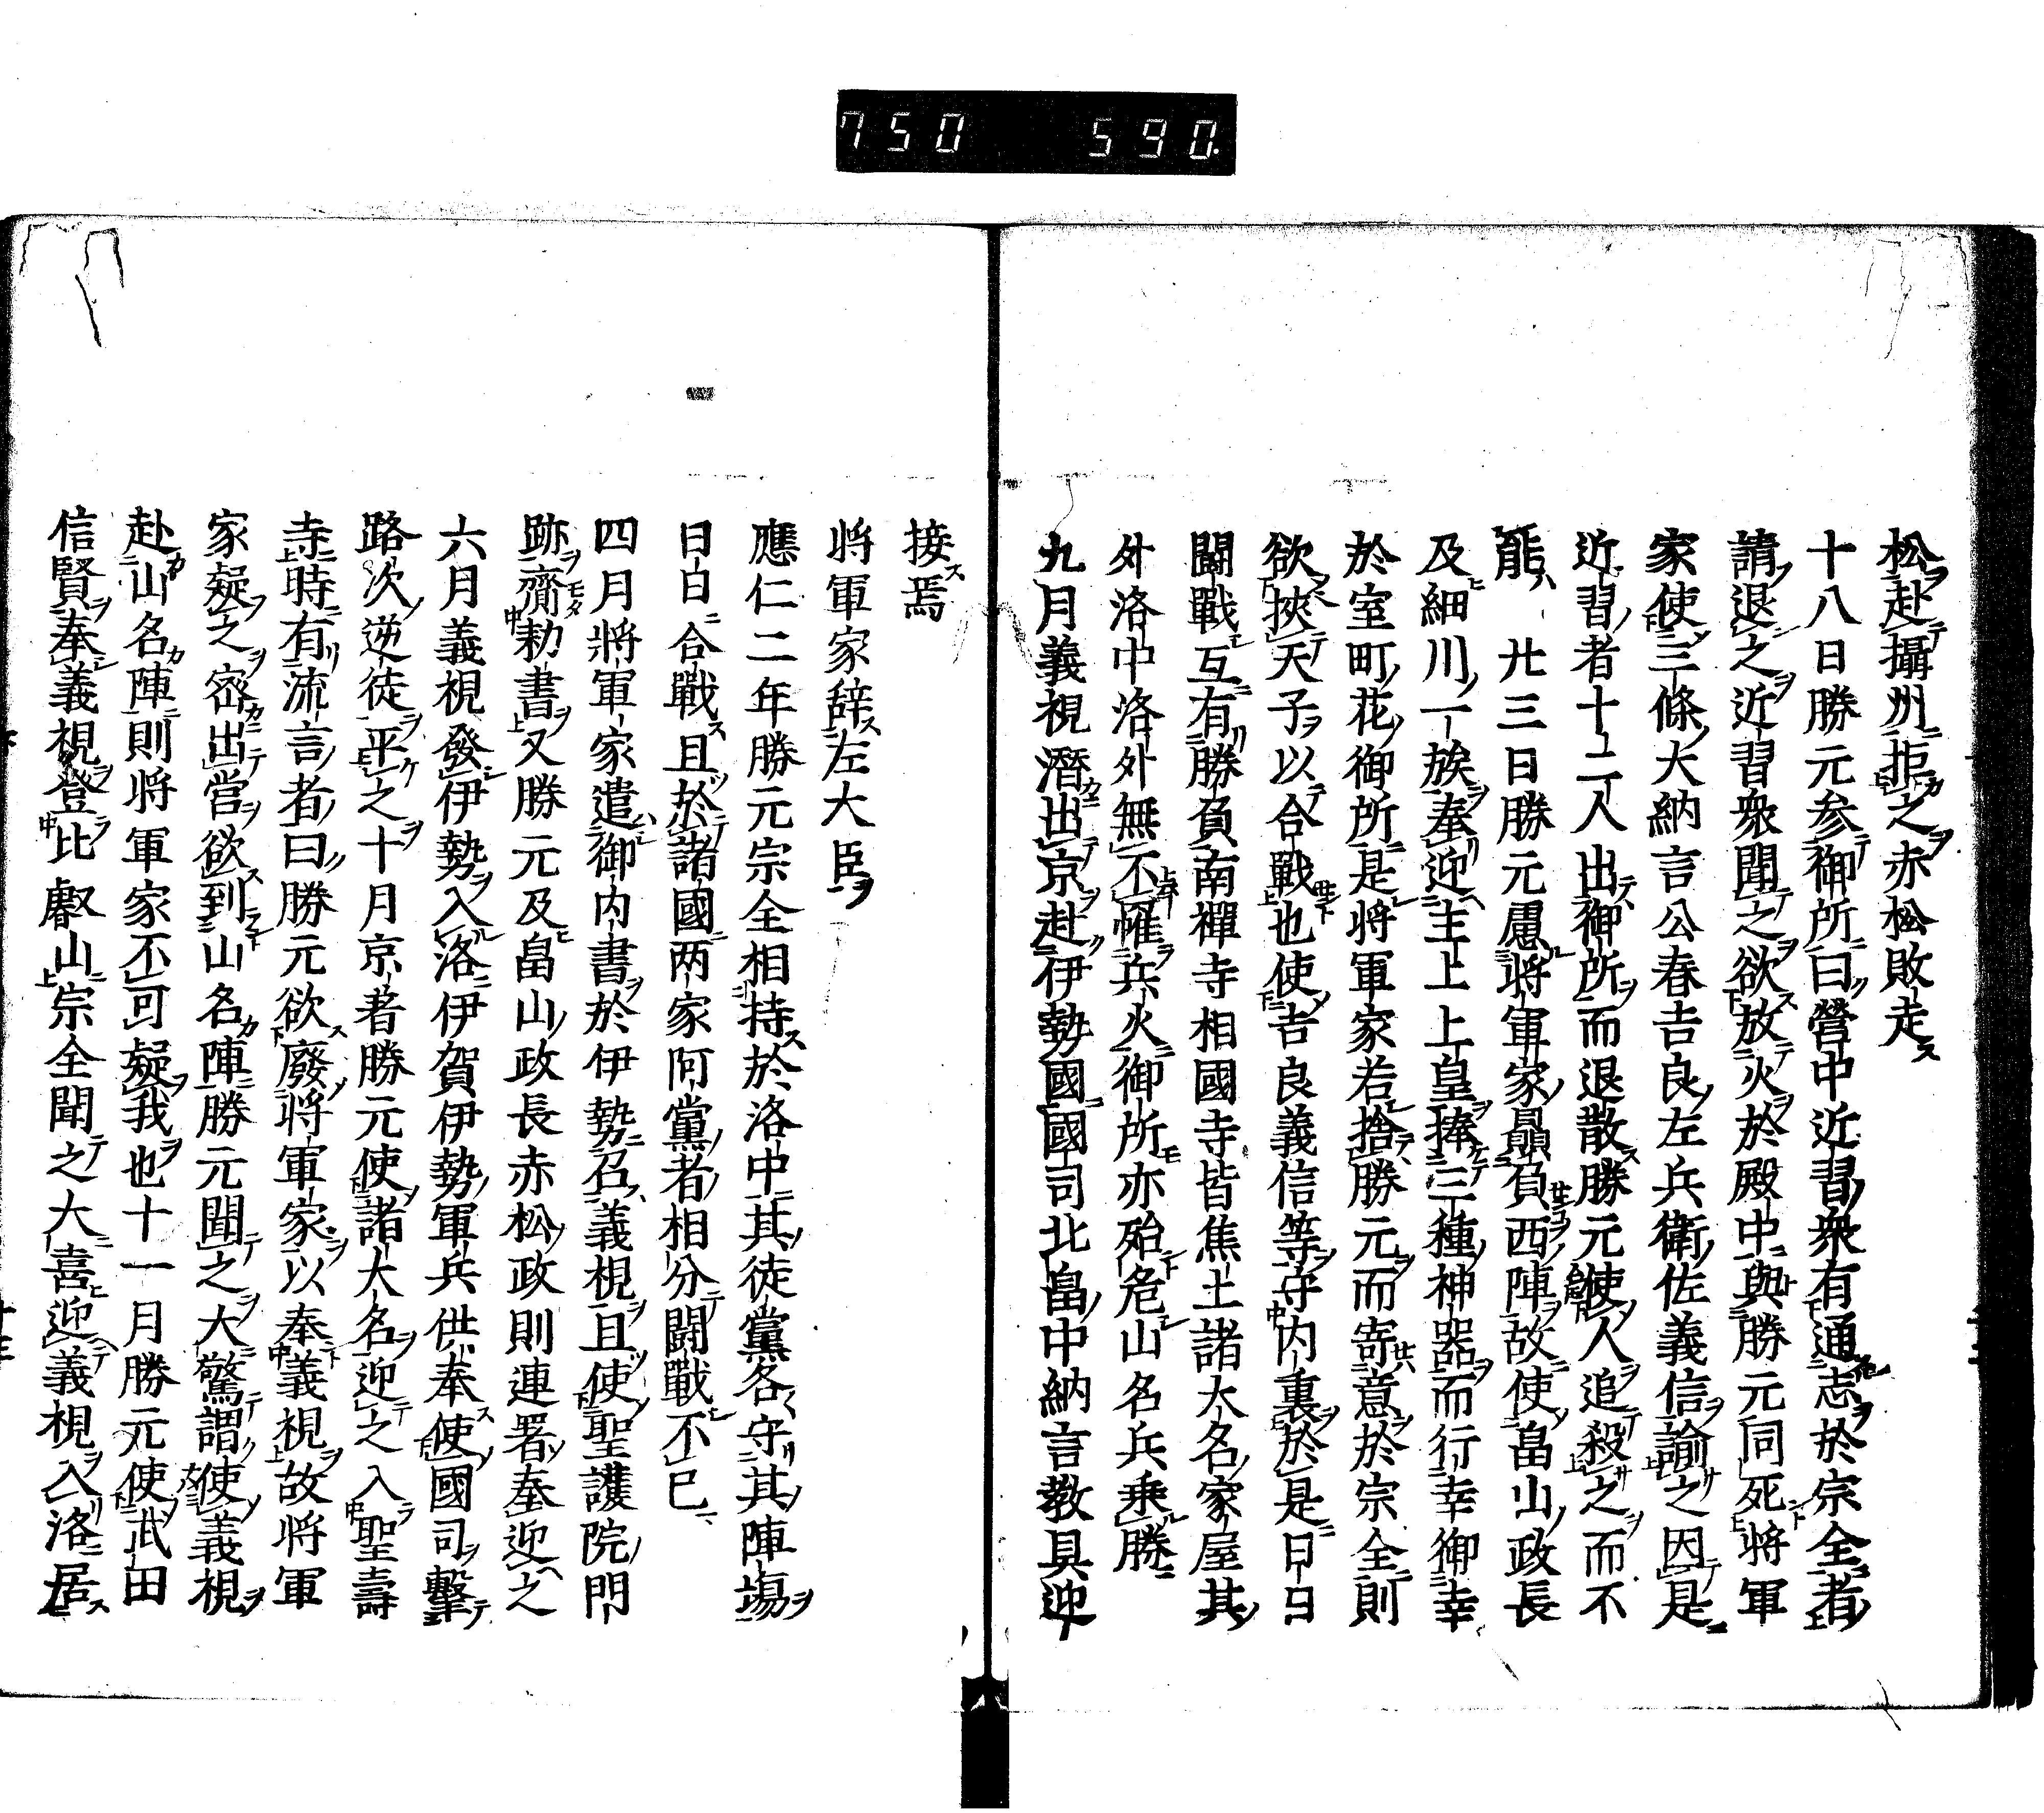 750 590
松赴攝州拒之赤松敗走
十八日勝元参御所曰營中近習衆有通志於宗全者
請退之近習衆聞之欲放火於殿中與勝元同死將軍
家使三條大納言公春吉良左兵衛佐義信諭之因是
近習者十二人出御所而退散勝元使人追殺之而不
能 廿三日勝元慮將軍家贔負西陣故使畠山政長
及細川一族奉迎主上上皇捧三種神器而行幸御幸
於室町花御所是將軍家若捨勝元而寄意於宗全則
欲挾天子以合戰也使吉良義信等守内裏於是日日
闘戰互有勝負南禪寺相國寺皆焦土諸大名家屋其
外洛中洛外無不罹兵火御所亦殆危山名兵乗勝
九月義視潛出京赴伊勢國國司北畠中納言教具迎
接焉
将軍家辞左大臣
應仁二年勝元宗全相持於洛中其徒黨各守其陣場
日日合戰且於諸國两家阿黨者相分闘戰不已
四月將軍家遣御内書於伊勢召義視且使聖護院門
跡齎勅書又勝元及畠山政長赤松政則連署奉迎之
六月義視發伊勢入洛伊賀伊勢軍兵供奉使國司擊
路次逆徒平之十月京者勝元使諸大名迎之入聖壽
寺時有流言者曰勝元欲廢將軍家以奉義視故将軍
家疑之密出營欲到山名陣勝元聞之大驚謂使義視
赴山名陣則将軍家不可疑我也十一月勝元使武田
信賢奉義視登比叡山宗全聞之大喜迎義視入洛居